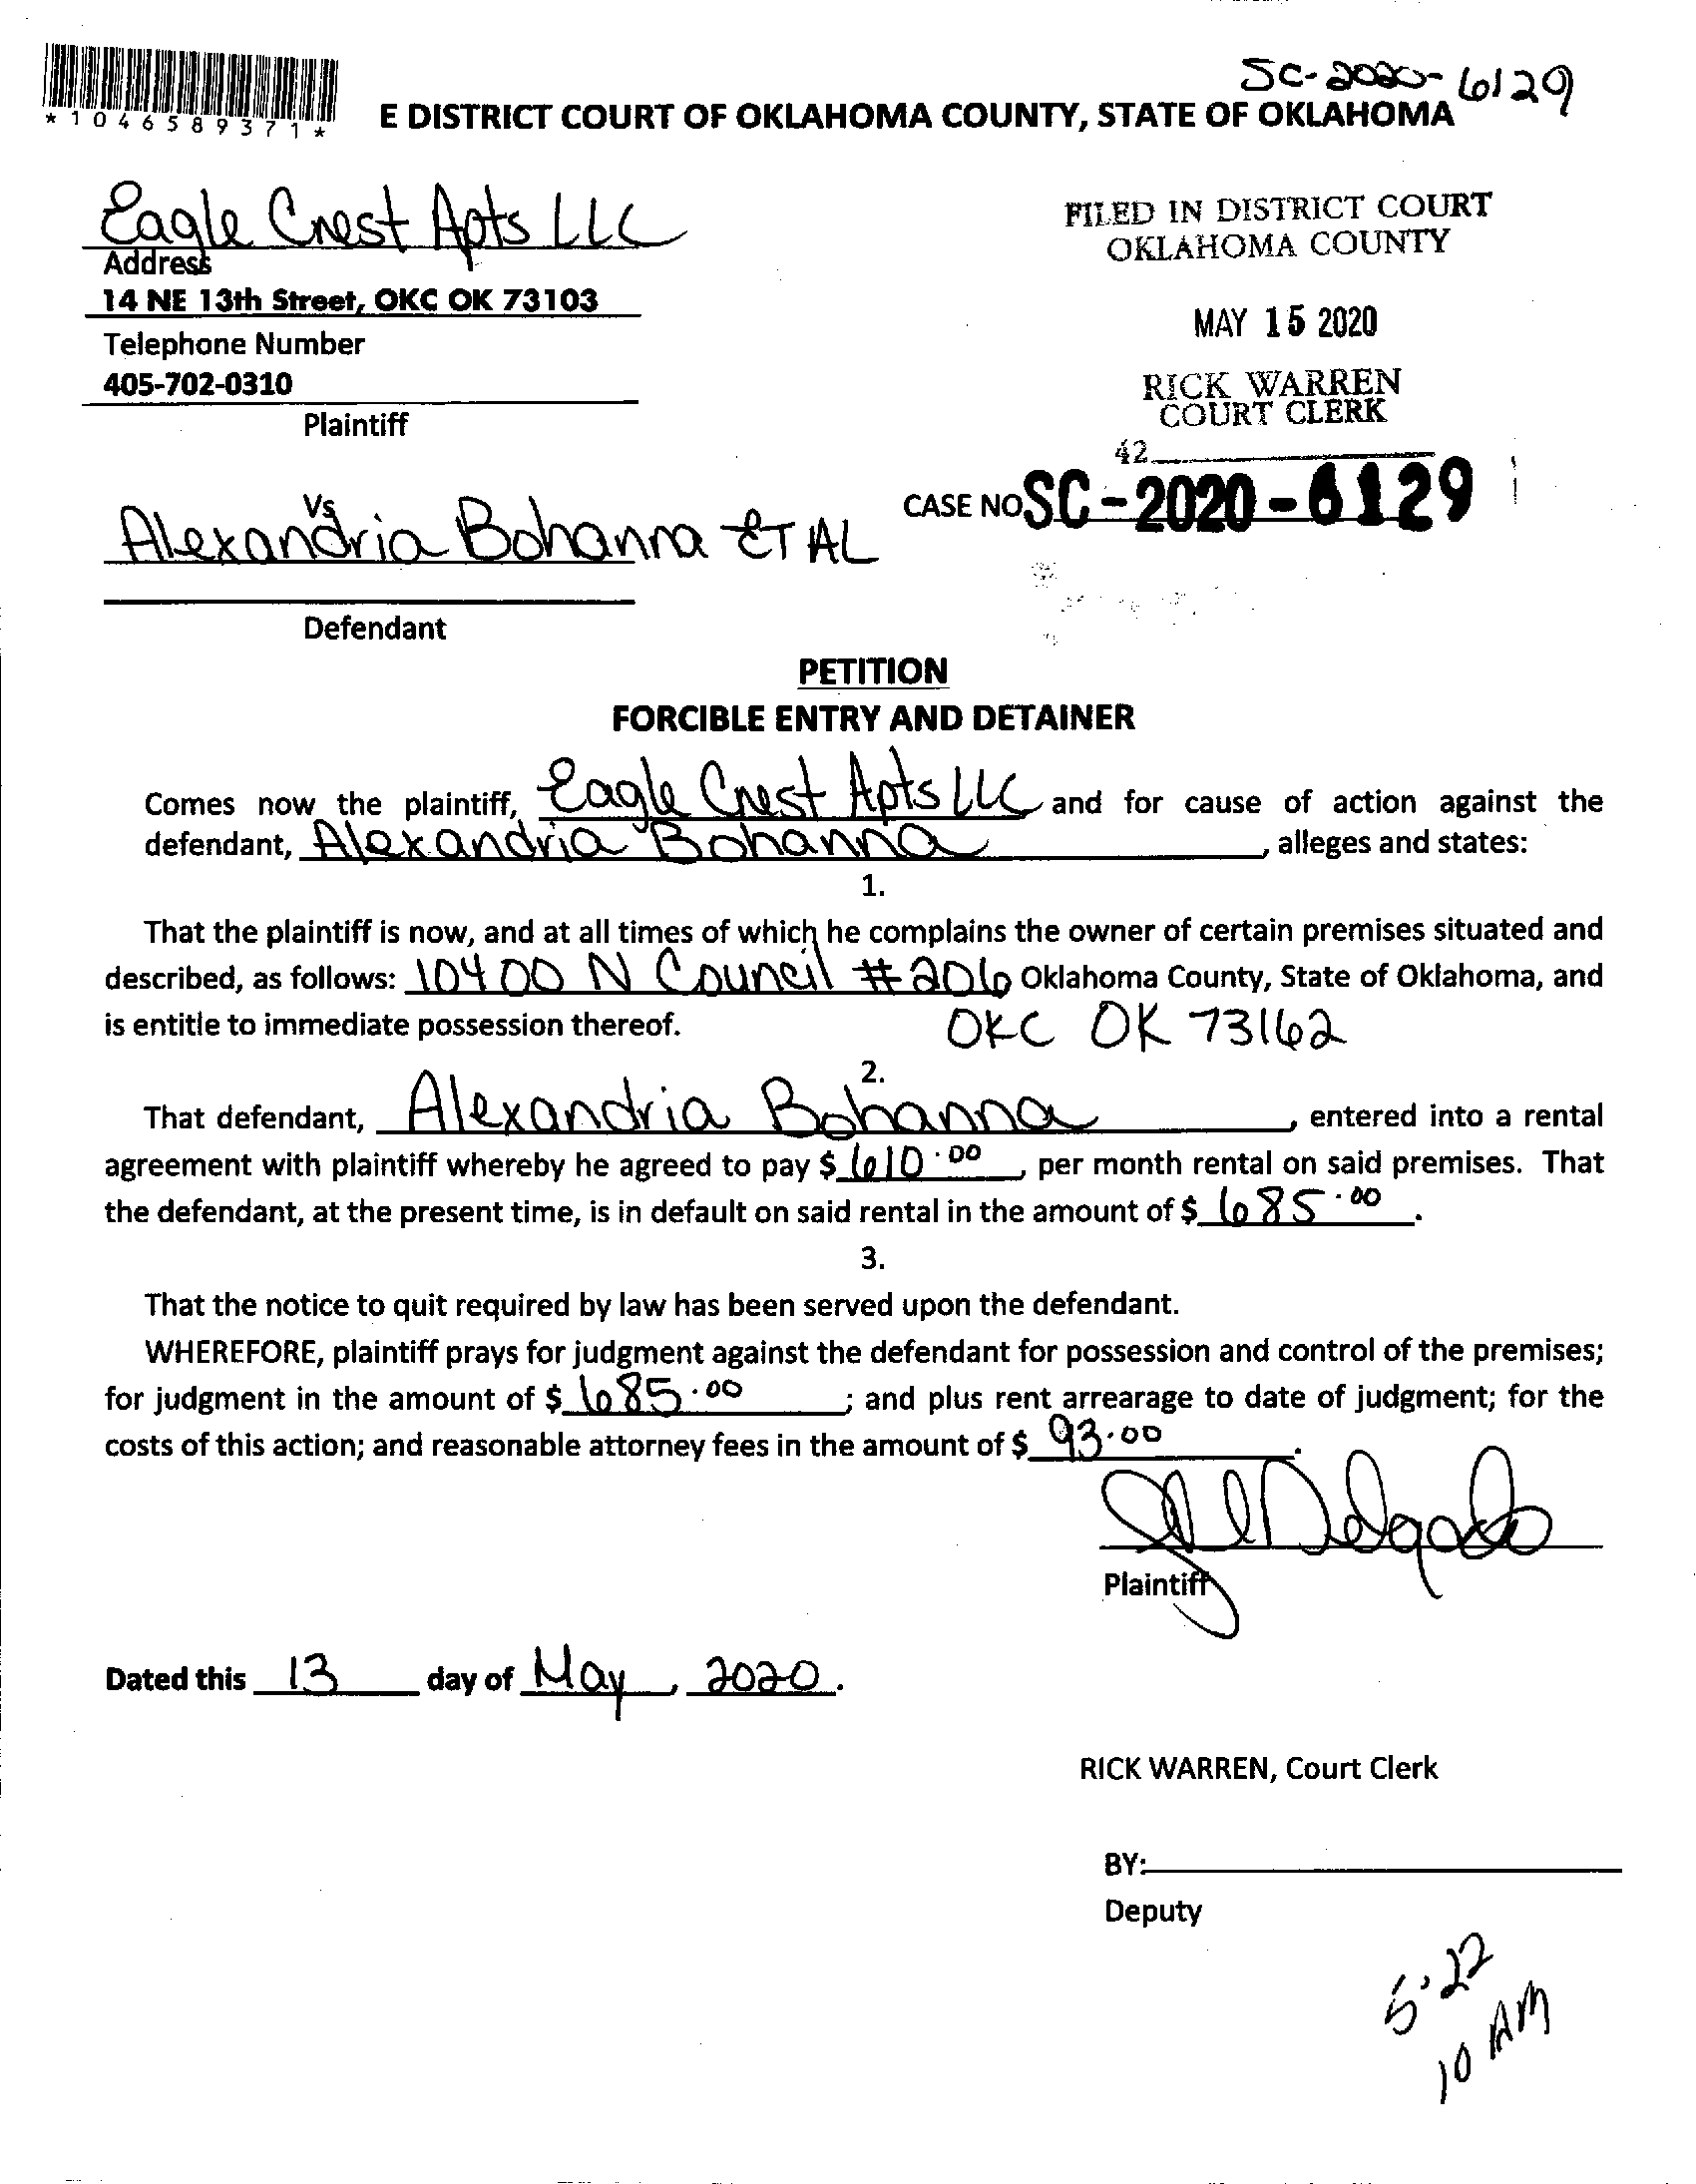 SC-2020-6129
*1046589371*
E DISTRICT COURT OF OKLAHOMA COUNTY, STATE OF OKLAHOMA
Eagle Crest Apts LLC
Address
14 NE 13th Street, OKC OK 73103
Telephone Number
405-702-0310
Plaintiff
FILED IN DISTRICT COURT
OKLAHOMA COUNTY
MAY 15 2020
RICK WARREN
COURT CLERK
42
CASE NO SC-2020-6129
Vs
Alexandria Bohanna ET AL
Defendant
PETITION
FORCIBLE ENTRY AND DETAINER
Comes now the plaintiff, Eagle Crest Apts LLC and for cause of action against the
defendant, Alexandria Bohanna, alleges and states:
1.
That the plaintiff is now, and at all times of which he complains the owner of certain premises situated and
described, as follows: 10400 N Council #206 Oklahoma County, State of Oklahoma, and
is entitle to immediate possession thereof. OKC OK 73162
2.
That defendant, Alexandria Bohanna, entered into a rental
agreement with plaintiff whereby he agreed to pay $ 610.00, per month rental on said premises. That
the defendant, at the present time, is in default on said rental in the amount of $ 685.00.
3.
That the notice to quit required by law has been served upon the defendant.
WHEREFORE, plaintiff prays for judgment against the defendant for possession and control of the premises;
for judgment in the amount of $ 685.00; and plus rent arrearage to date of judgment; for the
costs of this action; and reasonable attorney fees in the amount of $ 93.00.
Delgado
Plaintiff
Dated this 13 day of May, 2020.
RICK WARREN, Court Clerk
BY:
Deputy
5.22
10 AM